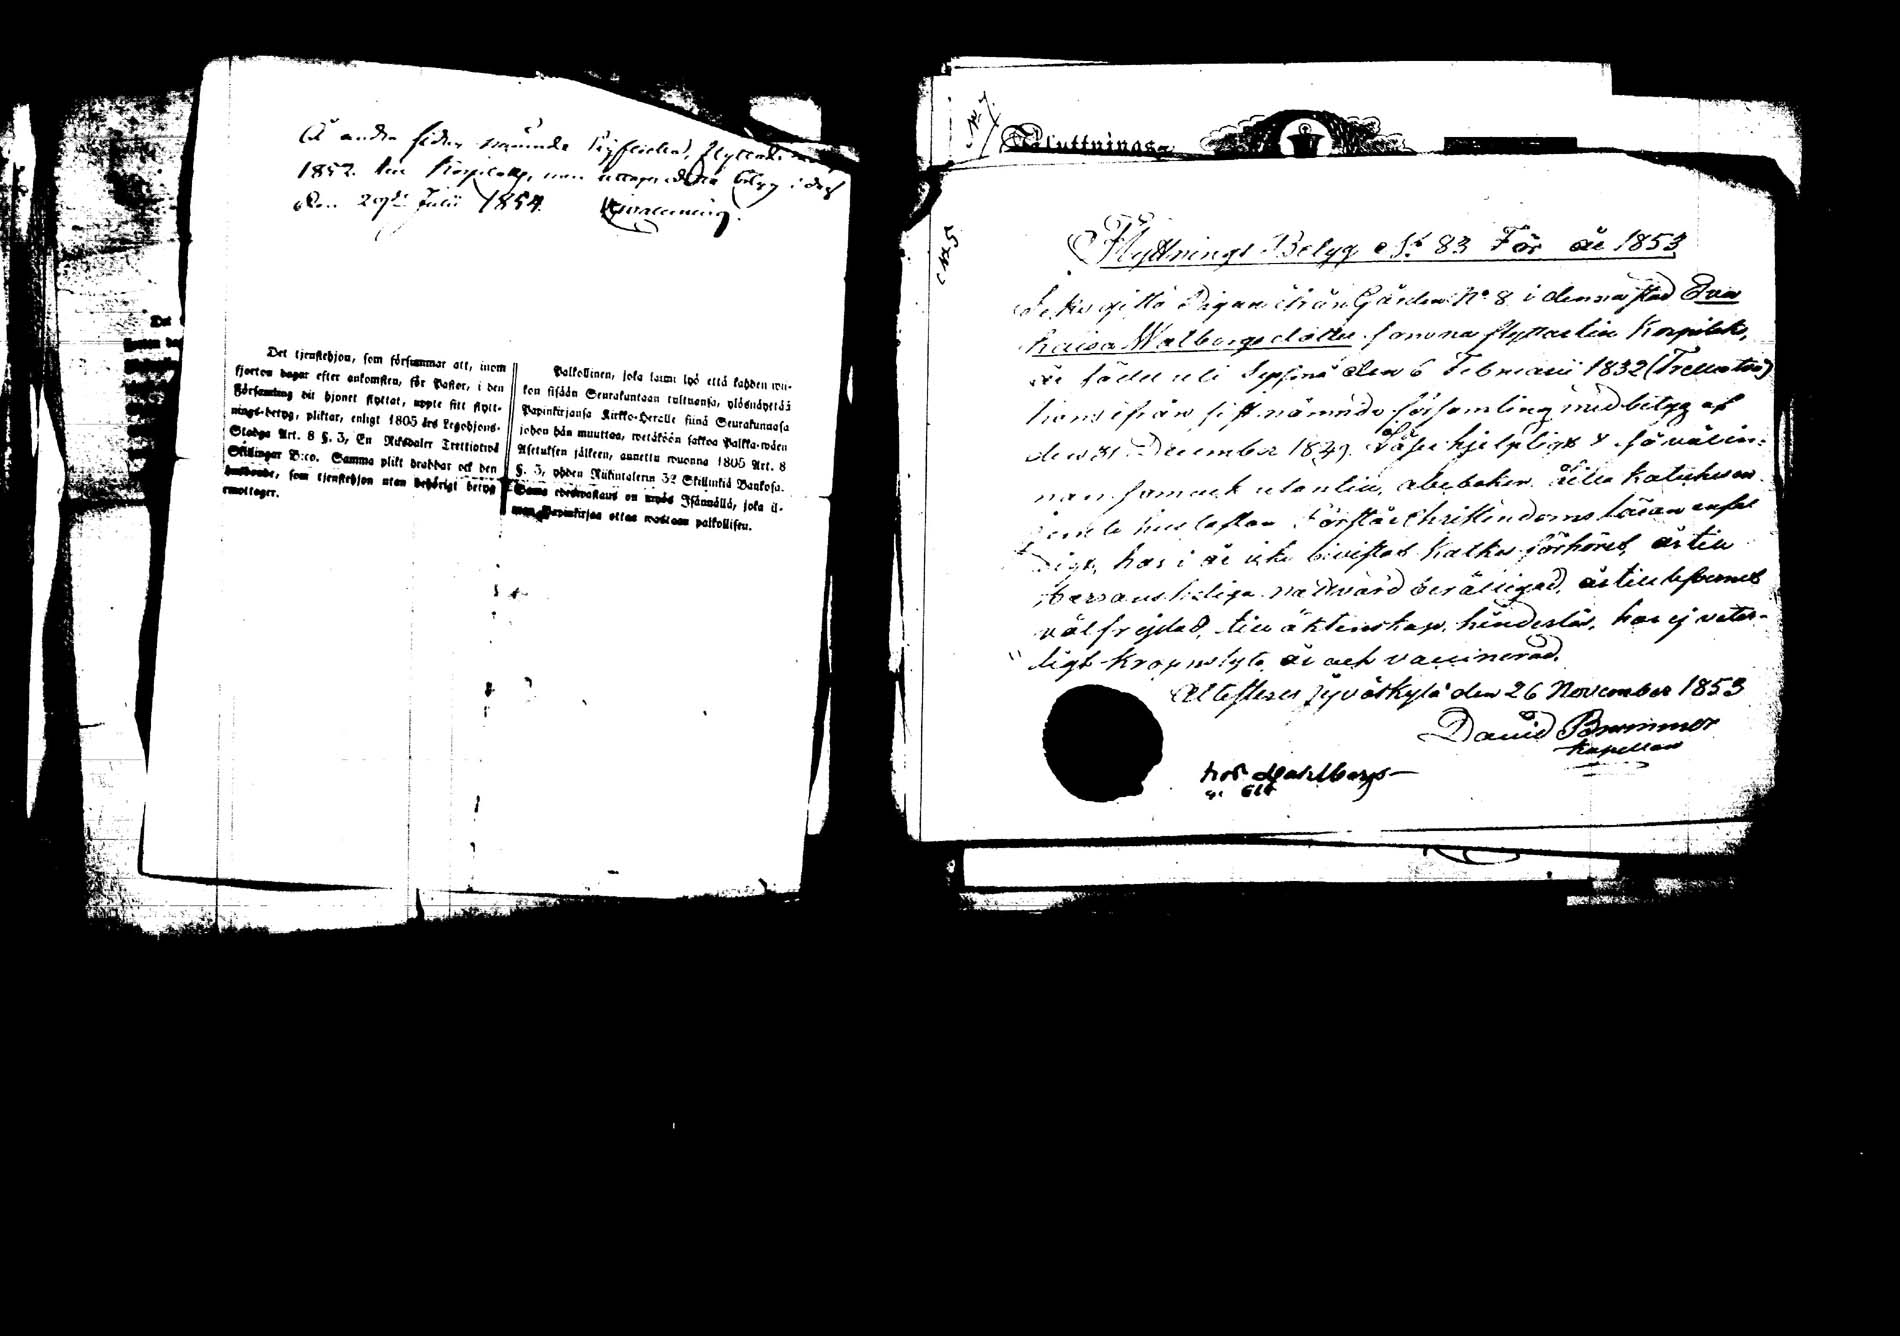 Å andra sidan nämnde flyttade
1852 till Korpilaks, men uttager detta betyg i dag
den 29de Julii 1854.
Det tjenstehjon, som försummar att, inom
fjorton dagar efter ankomsten, för Pastor, i den
Församling dit hjonet flyttat, uppte sitt flytt-
nings-betyg, pliktar, enligt 1805 års Legohjons-
Stadga Art. 8 §. 3, En Riksdaler Trettiotwå
Skillingar B:co. Samma plikt drabbar ock den
husbonde, som tjenstehjon utan behörigt betyg
emottager.
Palkollinen, joka laimi lyö että kahden wii-
kon sisään Seurakuntaan tultuansa, ylösnäyttää
Papinkirjansa Kirkko-Herralle siinä Seurakunnasa
johon hän muuttaa, wetäköön sakkoa Palkka-wäen
Asetuksen jälkeen, annettu wuonna 1805 Art. 8
§. 3, yhden Riikintalerin 32 Skillinkiä Bankosa.
Sama edeswastaus on myös Isännällä, joka il-
man Papinkirjaa ottaa wastaan palkollisen.
N:7.
Flyttningsa
N:5
Flyttnings Betyg N:o 83 För år 1853
Pigan ifrån Gården N:o 8 i denna stad Eva
Kaisa Walborgsdotter som nu flyttar till Korpilaks,
är född uti den 6 Februarii 1832 (Trettiotvå)
hans ifrån sistnämnde församling med betyg af
den 31 December 1849. Läser hjelpligt
nan samt utantill, abeboken, lilla katekesen
jemte hustaflan. Förstår Christendoms läran enfal
digt, har i år icke bivistat Läsförhöret, är till
Herrans heliga nattvard berättigad, är till lefvernet
väl frejdad, till äktenskap hinderslös, har ej veter-
ligt kroppslyte är och vaccinerad.
Attesterar Jyväskylä den 26 November 1853
David Brummer
Kapellan
hos Mahlberg